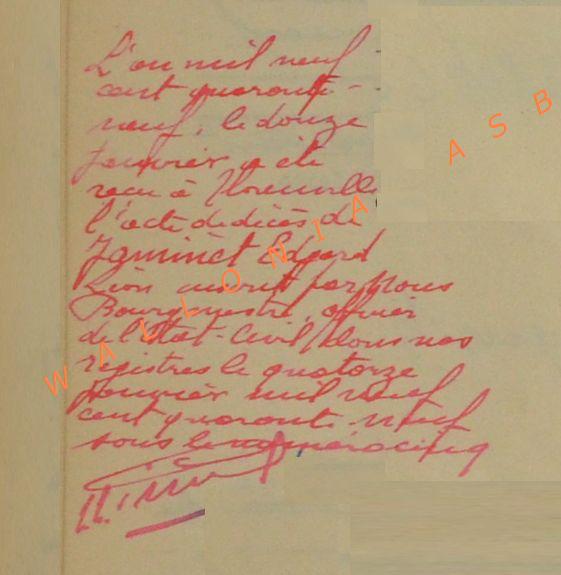 L'an mil neuf
cent quarante-
neuf, le douze
Janvier a été
reçu à Florenville
l'acte de décès de
Jaminet Edgard
Léon inscrit par Nous
Bourgmestre, officier
de l'Etat-Civil dans nos
registres le quatorze
janvier mil neuf
cent quarante neuf
sous le numéro cinq
WALLONIA ASB